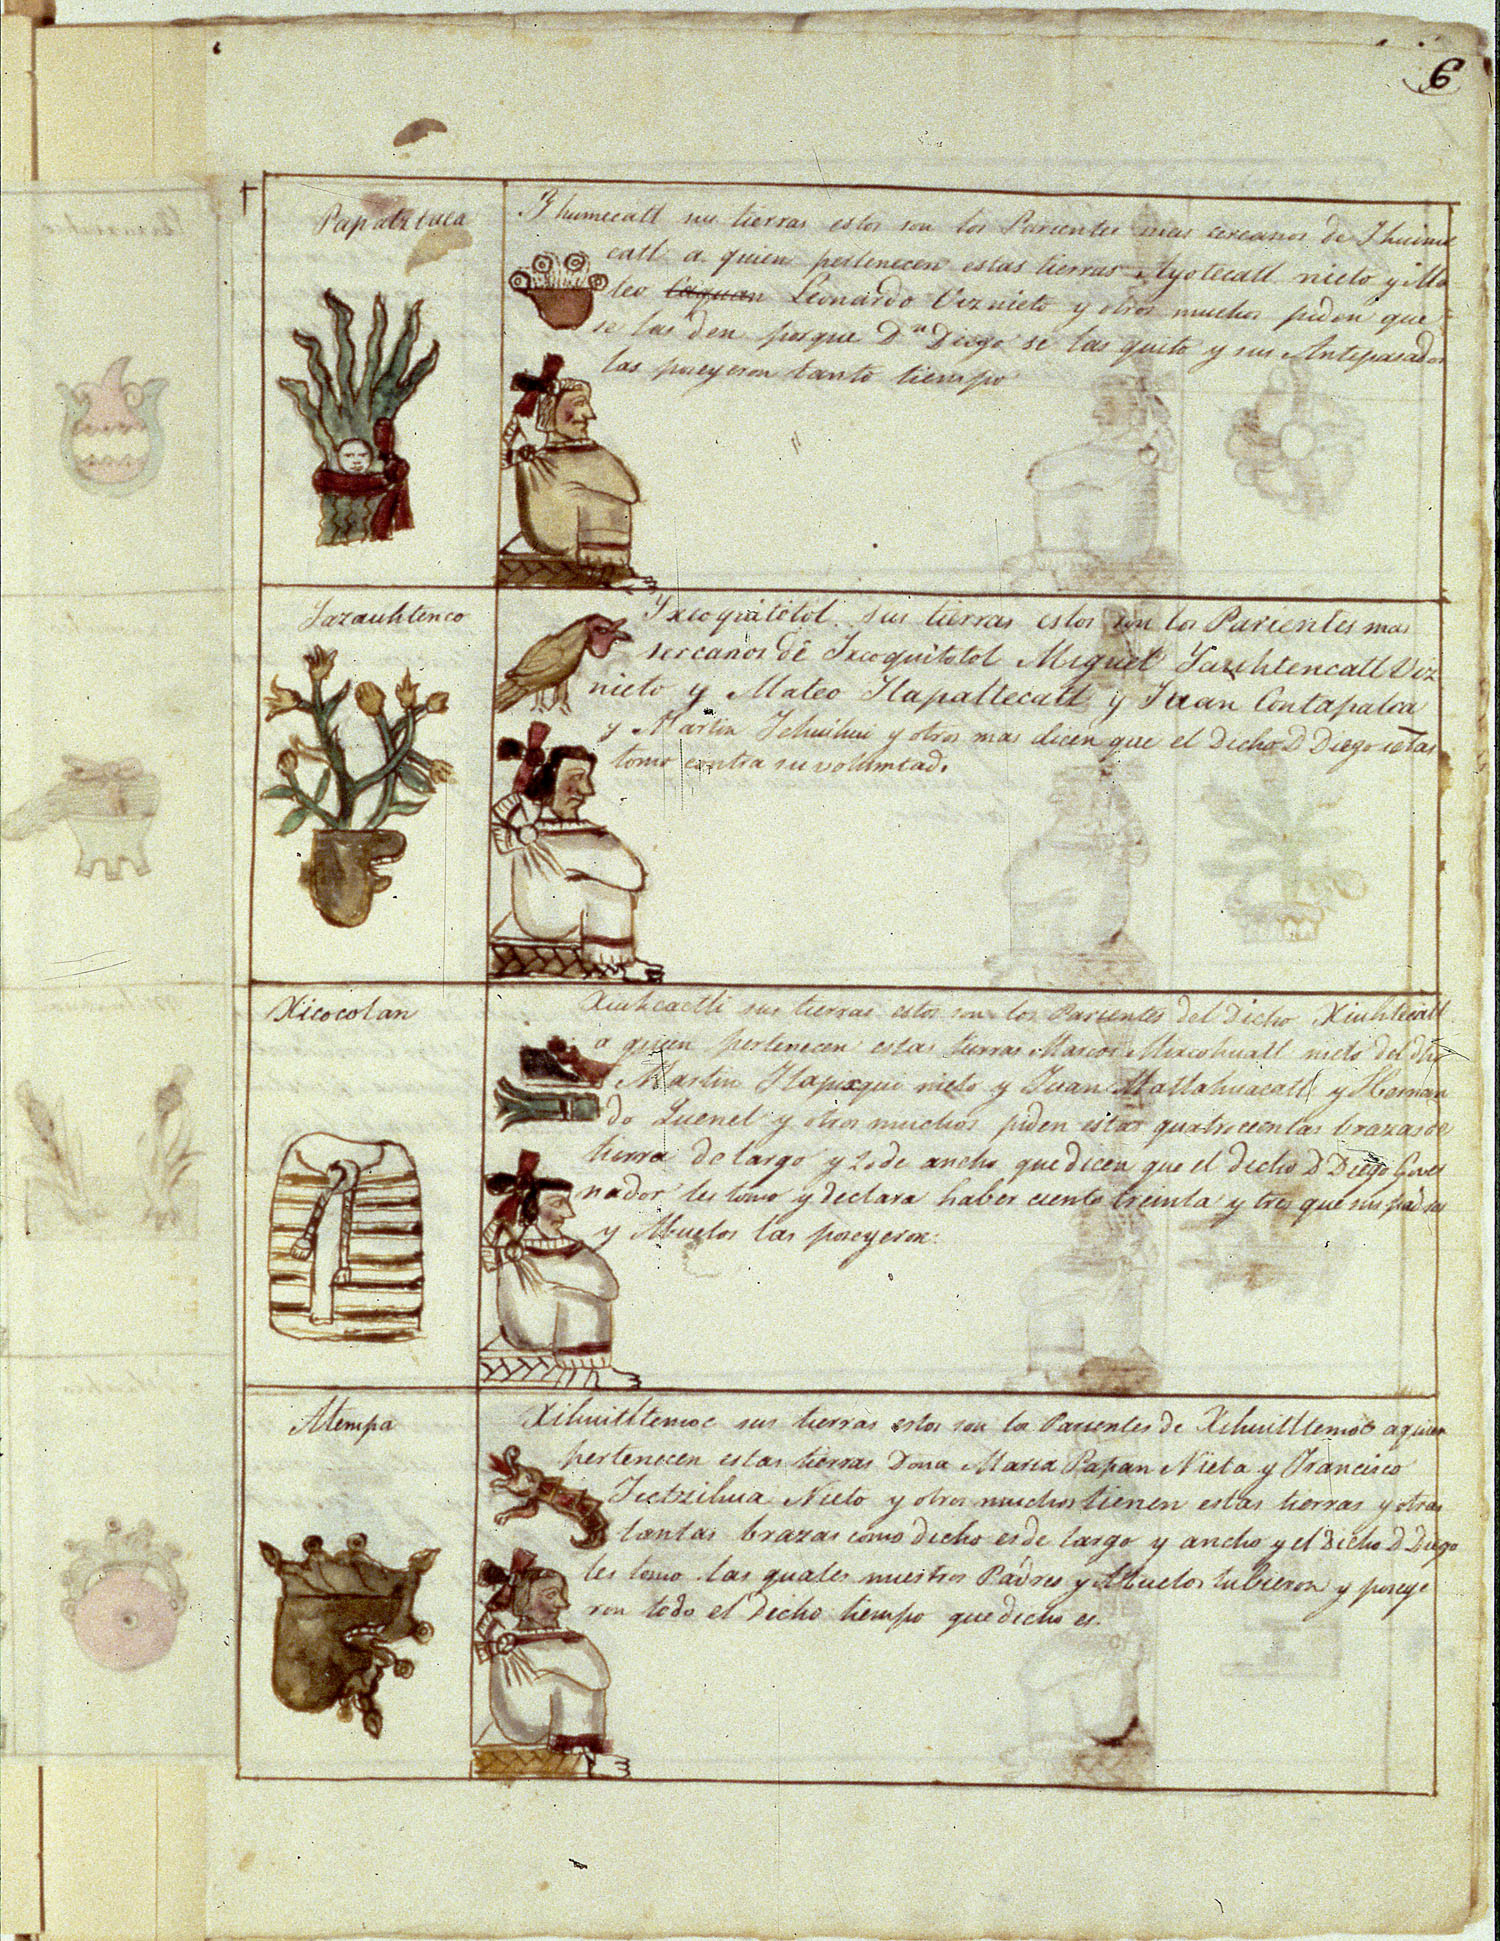 6
Papatztaca
Ihuimecatl sus tierras estos son los Parientes mas cercanos de Ihuime
catl a quien pertenecen estas tierras Ayotecatl nieto y Ma
teo Leonardo Viznieto y otros muchos piden que
se las den porque Dn Diego se las quito y sus Antepasados
las poseyeron tanto tiempo
Jazauhtenco
Yxcoquitotol sus tierras estos son los Parientes mas
sercanos de Ixcoquitotol Miguel Yauhtencatl Viz
nieto y Mateo Tlapaltecatl y Juan Contapalca
y Martin Ichuihui y otros mas dicen que el Dicho D Diego se las
tomo contra su voluntad.
Xicocolan
Xiuhcactli sus tierras estos son los Parientes del Dicho Xiuhtecatl
a quien pertenecen estas tierras Marcos Mixcohuatl nieto del dho
Martin Tlapixqui nieto y Juan Matlahuacatl y Hernan
do Quenel y otros muchos piden estas quatrocientas brazas de
tierra de largo y 20 de ancho que dicen que el dicho D Diego Gover
nador les tomo y declara haber ciento treinta y tres que sus padres
y Abuelos las poseyeron
Atempa
Xihuitltemoc sus tierras estos son los Parientes de Xihuitltemoc a quien
pertenecen estas tierras Dona Maria Papan Nieta y Francisco
Tectzihua Nieto y otros muchos tienen estas tierras y otras
tantas brazas como dicho es de largo y ancho y el Dicho D Diego
les tomo las quales nuestros Padres y Abuelos tubieron y poseye
ron todo el Dicho tiempo que dicho es.